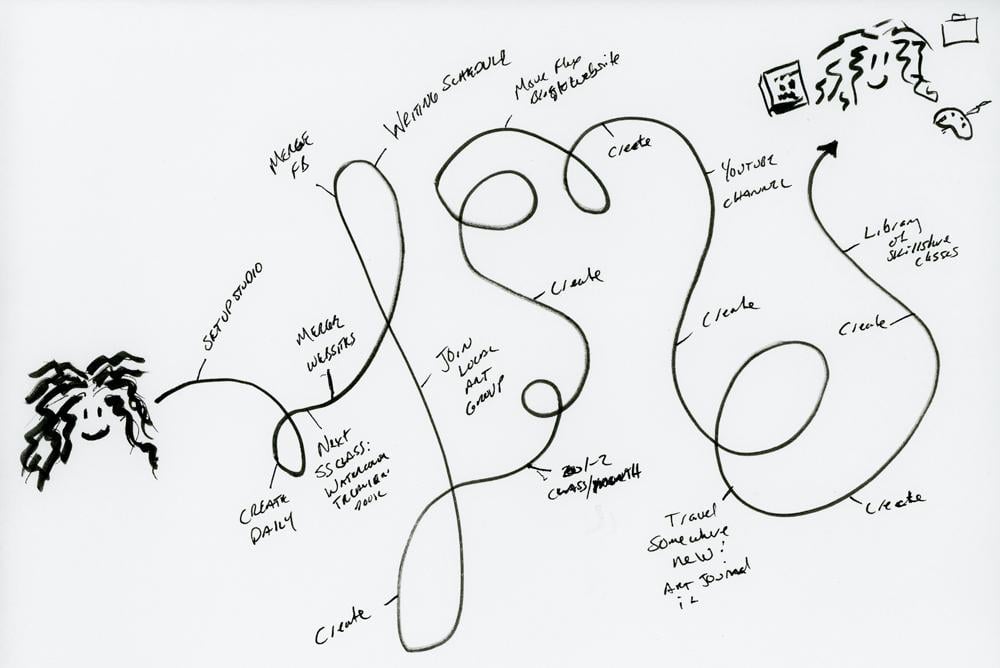 SET UP STUDIO
CREATE
DAILY
NEXT
SS CLASS:
WATERCOLOR
MERGE
WEBSITES
WRITING SCHEDULE
MERGE
FB
JOIN
LOCAL
ART
GROUP
Create
1-2
CLASS/MONTH
Create
Move Flux
Blog to Website
Create
YOUTUBE
CHANNEL
Create
Travel
Somewhere
new!
ART Journal
it
Create
Create
Library
of
Skillshare
Classes